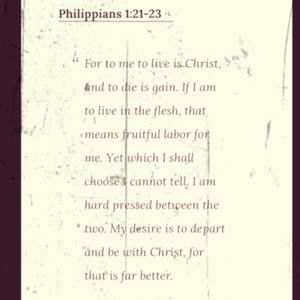 Philippians 1:21-23
“ For to me to live is Christ,
and to die is gain. If I am
to live in the flesh, that
means fruitful labor for
me. Yet which I shall
choose I cannot tell. I am
hard pressed between the
two. My desire is to depart
and be with Christ, for
that is far better.